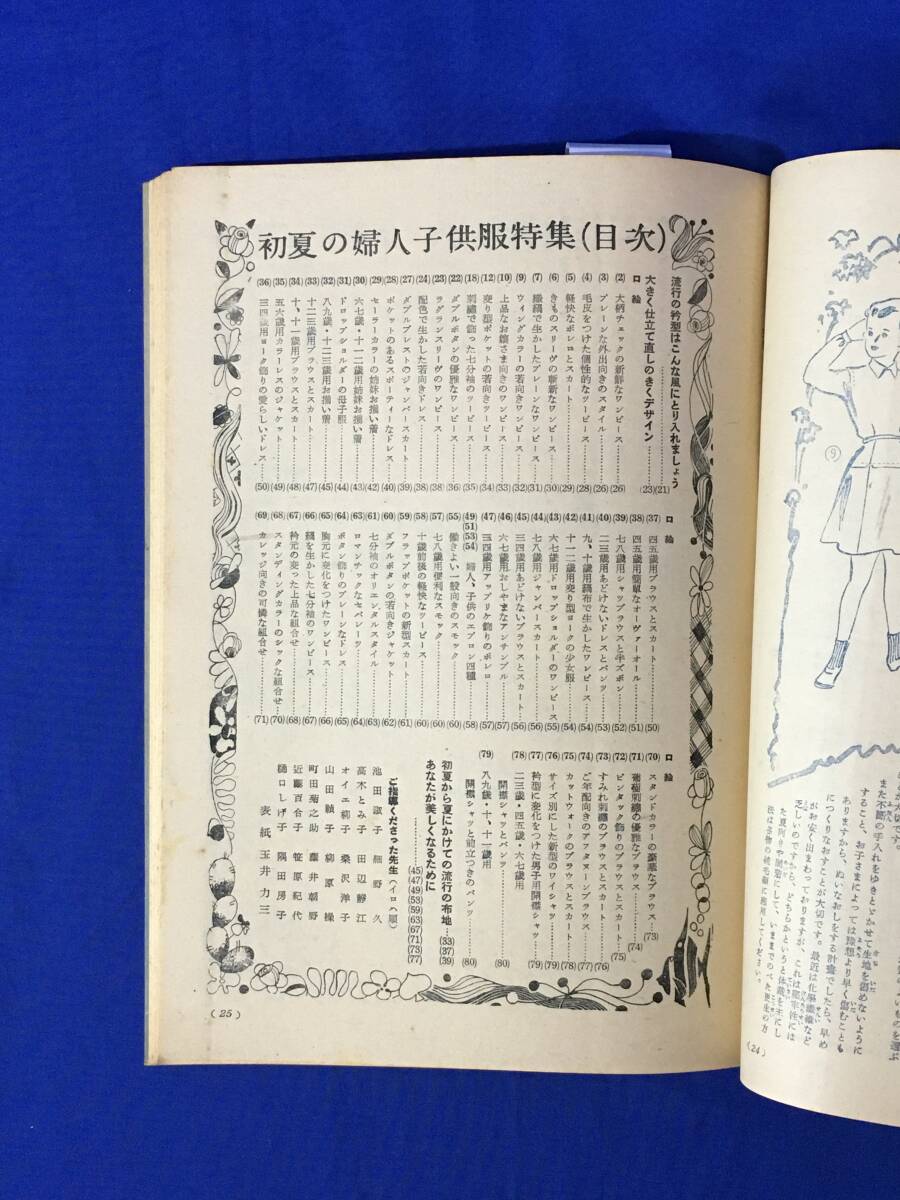 初夏の婦人子供服特集(目次)
流行の衿型はこんな風にとり入れましょう……(21)
大きく仕立て直しのきくデザイン…………(23)
口絵
(2) 大柄チェックの新鮮なワンピース……(26)
(3) プレーンな外出向きのスタイル……(26)
(4) 毛皮をつけた個性的なツーピース……(28)
(5) 軽快なボレロとスカート……(29)
(6) きものスリーヴの斬新なワンピース……(30)
(7) 織縞で生かしたプレーンなワンピース……(31)
(9) ウィングカラーの若向きワンピース……(32)
(10) 上品なお嬢さま向きのワンピース……(33)
(12) 変り型ポケットの若向きツーピース……(34)
(18) 刺繍で飾った七分袖のツーピース……(35)
(22) ダブルボタンの優雅なワンピース……(36)
(23) ラグランスリーヴのワンピース……(38)
(24) 配色で生かした若向きドレス……(38)
(27) ダブルブレストのジャンパースカート……(39)
(28) ポケットのあるスポーティーなドレス……(40)
(29) セーラーカラーの姉妹お揃い着……(42)
(30) 六七歳・十一二歳用姉妹お揃い着……(43)
(31) ドロップショルダーの母子服……(44)
(32) 八九歳・十二三歳用お揃い着……(45)
(33) 十二三歳用ブラウスとスカート……(47)
(34) 十、十一歳用ブラウスとスカート……(48)
(35) 五六歳用カラーレスのジャケット……(49)
(36) 三四歳用ヨーク飾りの愛らしいドレス……(50)
口絵
(37) 四五歳用ブラウスとスカート……(50)
(38) 四五歳用簡単なオーヴァーオール……(51)
(39) 七八歳用シャップブラウスと半ズボン……(52)
(40) 二三歳用あどけないドレスとパンツ……(53)
(41) 九、十歳用縞布で生かしたワンピース……(54)
(42) 十一二歳用変り型ヨークの少女服……(54)
(43) 六七歳用ドロップショルダーのワンピース……(55)
(44) 七八歳用ジャンパースカート……(56)
(45) 三四歳用あどけないブラウスとスカート……(56)
(46) 六七歳用おしやまなアンサンブル……(57)
(47) 三四歳用アップリケ飾りのボレロ……(57)
(49)(51)(53)(54) 婦人、子供のエプロン四種……(58)
(55) 働きよい一般向きのスモック……(60)
(57) 七八歳用便利なスモック……(60)
(58) 十歳前後の軽快なツーピース……(60)
(59) フラップポケットの新型スカート……(61)
(60) ダブルボタンの若向きジャケット……(62)
(61) 七分袖のオリエンタルスタイル……(63)
(63) ロマンチックなセパレーツ……(64)
(64) ボタン飾りのプレーンなドレス……(65)
(65) 胸元に変化をつけたワンピース……(66)
(66) 縞を生かした七分袖のワンピース……(67)
(67) 衿元の変った上品な組合せ……(68)
(68) スタンディングカラーのシックな組合せ……(70)
(69) カレッジ向きの可憐な組合せ……(71)
口絵
(70) スタンドカラーの豪華なブラウス……(73)
(71) 葡萄刺繍の優雅なブラウス……(74)
(72) ピンタック飾りのブラウスとスカート……(75)
(73) すみれ刺繍のブラウスとスカート……(76)
(74) ご年配向きのアフタヌーンブラウス……(77)
(75) カットウォークのブラウスとスカート……(78)
(76) サイズ別にした新型のワイシャツ……(79)
(77) 衿型に変化をつけた男子用開襟シャツ……(79)
(78) 二三歳・四五歳・六七歳用
開襟シャツとパンツ……(80)
(79) 八九歳・十、十一歳用
開襟シャツと前立つきのパンツ……(80)
初夏から夏にかけての流行の布地……(33)(37)(39)
あなたが美しくなるために
(45)(47)(49)(53)(59)(63)(67)(71)(73)(77)
ご指導くださった先生(イロハ順)
池田淑子 細野久
高木とみ子 田辺靜江
オイエ莉子 桑沢洋子
山田頴子 柳原操
町田菊之助 藤井朝野
近藤百合子 笹原紀代
樋口しげ子 隅田房子
表紙 玉井力三
(25)
(9)
また不断の手入れをゆきとどかせて生地を傷めないように
すること、お子さまによっては予想より早く傷むことも
ありますから、ぬいなおしをする計画でしたら、早め
につくりなおすことが大切です。最近は化学繊維など
がお安く出まわっておりますが、これは堅牢性には
芝しいのですから、どちらかというと体裁を主にし
(24)